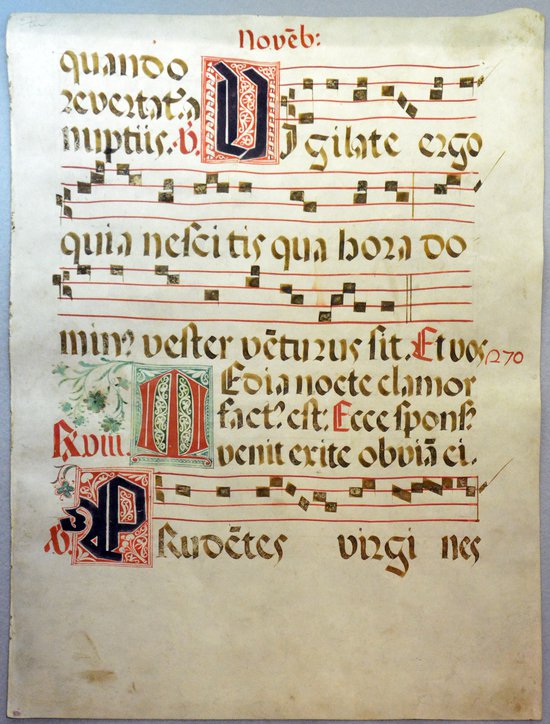 Novēb:
quando
revertat᷑ a
nuptiis. ℣.
VIgilate ergo
quia nescitis qua hora do
min⁹ vester vēturus sit. Et vos
270
MEdia nocte clamor
fact⁹ est: Ecce spons⁹
R. viii. venit exite obviā ei.
℣. PRudētes virgines